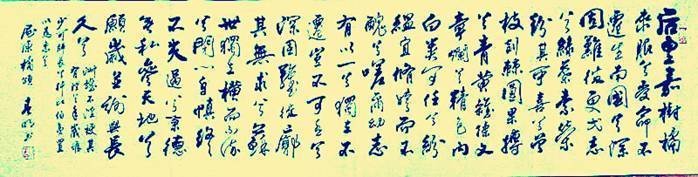 后皇嘉樹橘
來服兮受命不
遷生南國兮深
固難徙更壹志
兮綠葉素榮
紛其可喜兮曾
枝剡棘圓果摶
兮青黃雜揉文
章爛兮精色內
白類可任兮紛
緼宜脩姱而不
醜兮嗟爾幼志
有以異兮獨立不
遷豈不可喜兮
深固難徙廓
其無求兮蘇
世獨立橫而不流
兮閉心自慎終
不失過兮秉德
無私參天地兮
願歲並謝與長
友兮
淑離不淫梗其
有理兮年歲雖
少可師長兮行比伯夷置
以為像兮
屈原橘頌